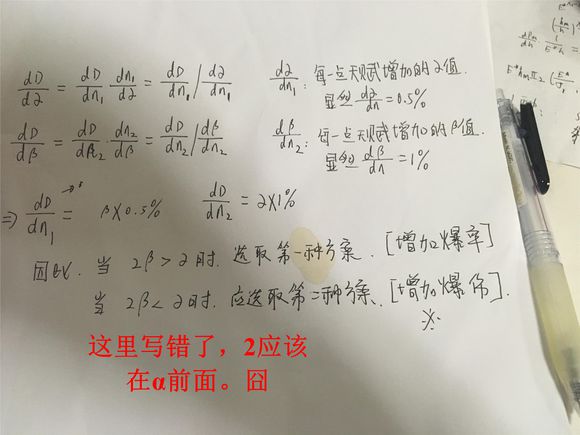 dD/dα = dD/dn₁ dn₁/dα = dD/dn₁ / dα/dn₁
dα/dn₁: 每一点天赋增加的α值.
显然 dα/dn = 0.5%
dD/dβ = dD/dβ₂ · dn₂/dβ = dD/dn₂ / dβ/dn₂
dβ/dn₂: 每一点天赋增加的β值.
显然 dβ/dn = 1%
⇒ dD/dn₁ = β×0.5% dD/dn₂ = α×1%
因此, 当 2β > α 时. 选取第一种方案. [增加爆率]
当 2β < α 时. 应选取第二种方案. [增加爆伤].
这里写错了，2应该
在α前面。囧
E*
dh
E*h